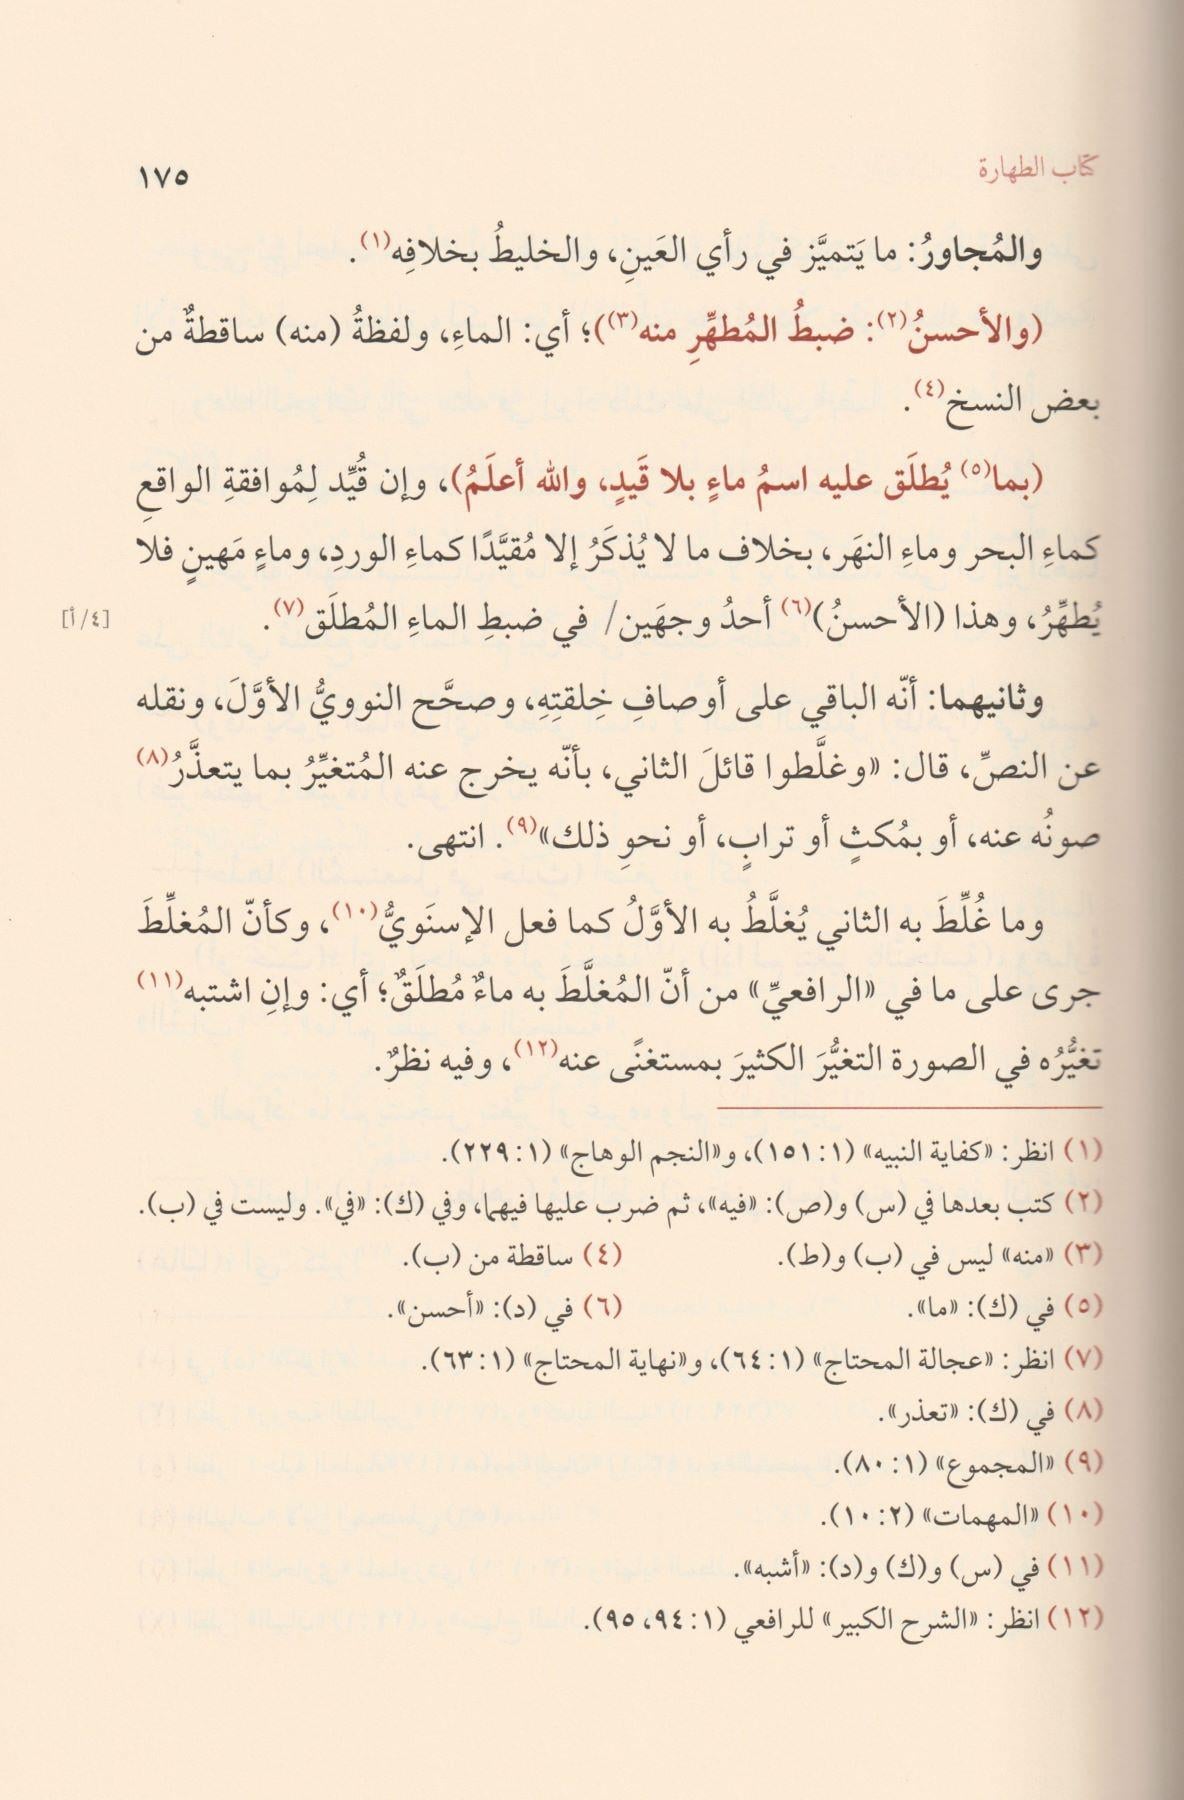 كتاب الطهارة
١٧٥
والمُجاورُ: ما يَتميَّز في رأي العَينِ، والخليطُ بخلافِه(١).
(والأحسنُ(٢): ضبطُ المُطهِّرِ منه(٣))؛ أي: الماءِ، ولفظةُ (منه) ساقطةٌ من
بعض النسخ(٤).
(بما(٥) يُطلَق عليه اسمُ ماءٍ بلا قَيدٍ، والله أعلَمُ)، وإن قُيِّد لِمُوافقةِ الواقعِ
كماءِ البحر وماءِ النهَر، بخلاف ما لا يُذكَرُ إلا مُقيَّدًا كماءِ الوردِ، وماءٍ مَهينٍ فلا
يُطهِّرُ، وهذا (الأحسنُ)(٦) أحدُ وجهَين/ في ضبطِ الماءِ المُطلَق(٧).
[٤/أ]
وثانيهما: أنّه الباقي على أوصافِ خِلقتِهِ، وصحَّح النوويُّ الأوَّلَ، ونقله
عن النصِّ، قال: «وغلَّطوا قائلَ الثاني، بأنّه يخرج عنه المُتغيِّرُ بما يتعذَّرُ(٨)
صونُه عنه، أو بمُكثٍ أو ترابٍ، أو نحوِ ذلك»(٩). انتهى.
وما غُلِّطَ به الثاني يُغلَّطُ به الأوَّلُ كما فعل الإسنَويُّ(١٠)، وكأنّ المُغلِّطَ
جرى على ما في «الرافعيِّ» من أنّ المُغلَّطَ به ماءٌ مُطلَقٌ؛ أي: وإنِ اشتبه(١١)
تغيُّرُه في الصورة التغيُّرَ الكثيرَ بمستغنًى عنه(١٢)، وفيه نظرٌ.
(١) انظر: «كفاية النبيه» (١: ١٥١)، و«النجم الوهاج» (١: ٢٢٩).
(٢) كتب بعدها في (س) و(ص): «فيه»، ثم ضرب عليها فيهما، وفي (ك): «في». وليست في (ب).
(٣) «منه» ليس في (ب) و(ط).
(٤) ساقطة من (ب).
(٥) في (ك): «ما».
(٦) في (د): «أحسن».
(٧) انظر: «عجالة المحتاج» (١: ٦٤)، و«نهاية المحتاج» (١: ٦٣).
(٨) في (ك): «تعذر».
(٩) «المجموع» (١: ٨٠).
(١٠) «المهمات» (٢: ١٠).
(١١) في (س) و(ك) و(د): «أشبه».
(١٢) انظر: «الشرح الكبير» للرافعي (١: ٩٤، ٩٥).